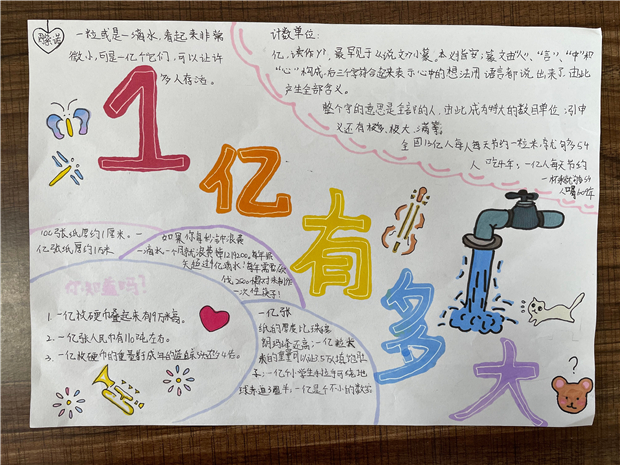 一粒或是一滴水,看起来非常
微小,可是一亿个它们,可以让许
多人存活。
计数单位:
亿,读作yì,最早见于《说文》小篆,本义指安;篆文由"人"、"言"、"中"和
"心"构成,后三个字符合起来表示心中的想法用语言都说出来了,由此
产生全部含义。
整个字的意思是全部的人,由此成为特大的数目单位;引申
义还有极多、极大、满等。
全国13亿人每人每天节约一粒米,就可够54
人吃半年,一亿人每天节约
1亿有多大
100张纸厚约1厘米。一
亿张纸厚约1万米
如果你每秒钟浪费
一滴水,一个
你知道吗?
1. 一亿枚硬币叠起来有1万米高。
2. 一亿张人民币有110吨左右。
3. 一亿枚硬币的重量
一亿张
纸的厚度比珠穆
朗玛峰还高;一亿粒米
一亿个小学生手拉手可绕地
球赤道3圈半;一亿是个不小的数字
?